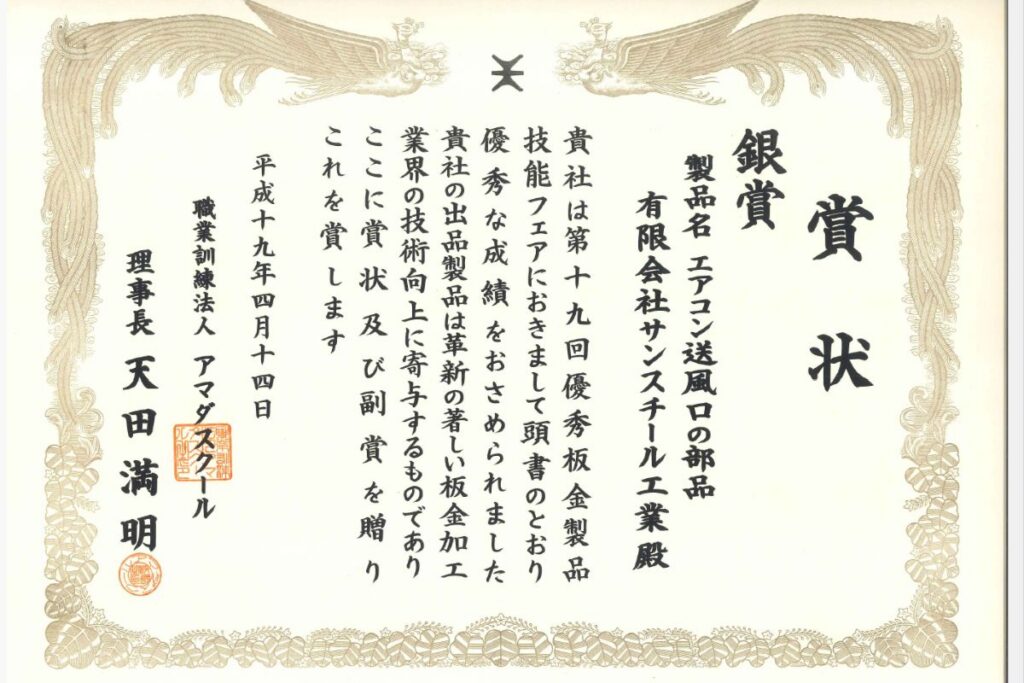 賞状
銀賞
製品名 エアコン送風口の部品
有限会社サンスチール工業殿
貴社は第十九回優秀板金製品
技能フェアにおきまして頭書のとおり
優秀な成績をおさめられました
貴社の出品製品は革新の著しい板金加工
業界の技術向上に寄与するものであり
ここに賞状及び副賞を贈り
これを賞します
平成十九年四月十四日
職業訓練法人 アマダスクール
理事長 天田満明